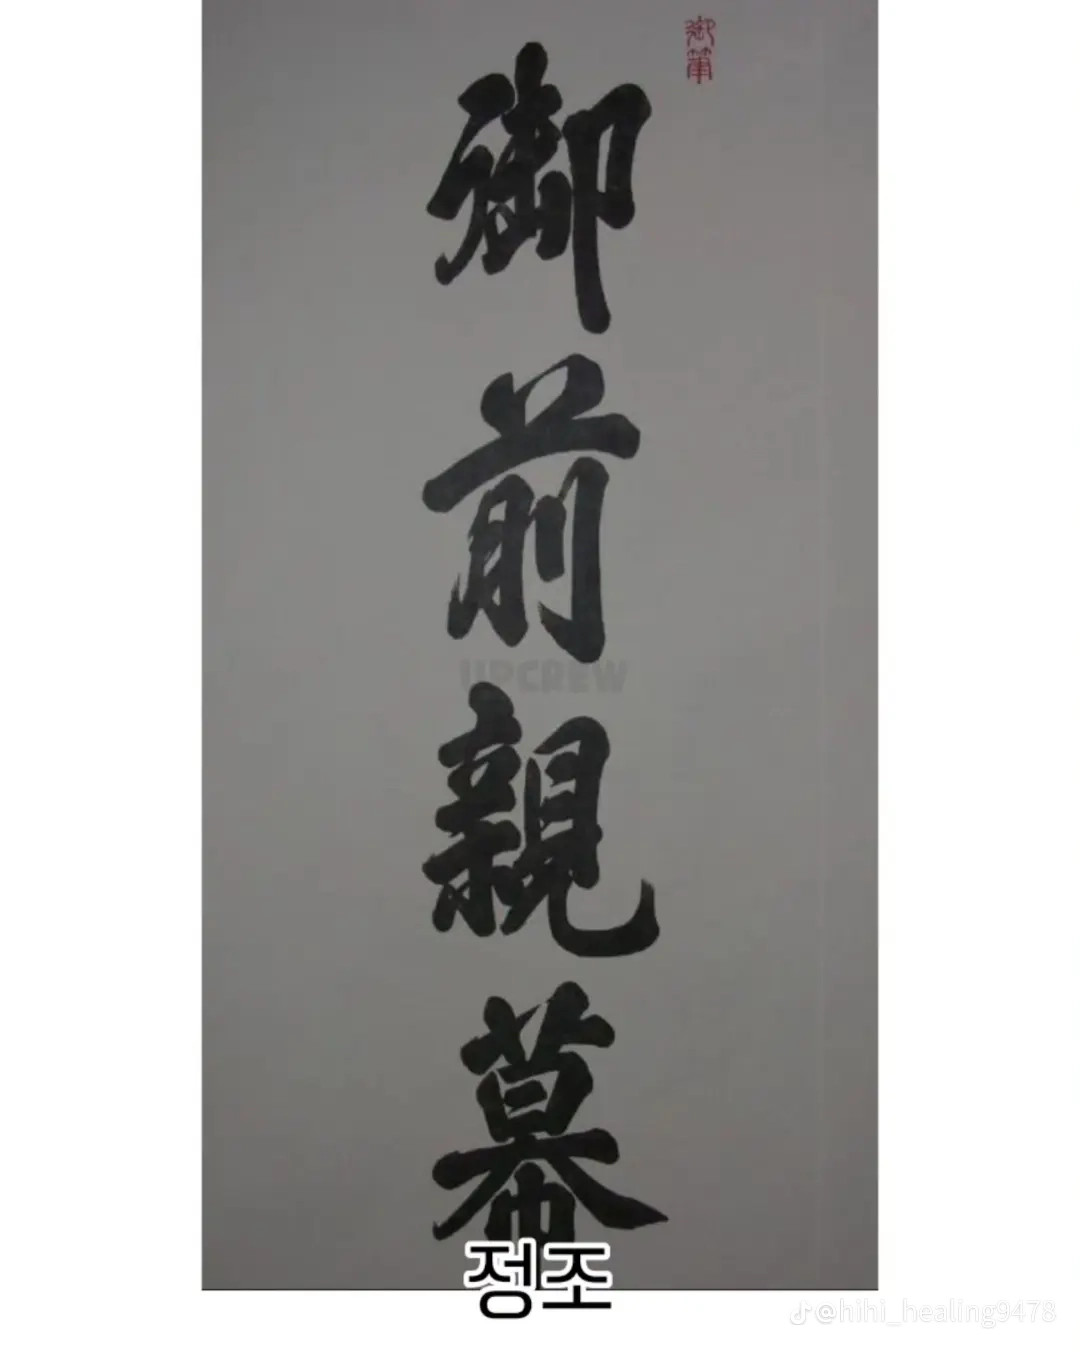 御筆
御
前
親
幕
UPCREW
정조
@hihi_healing9478